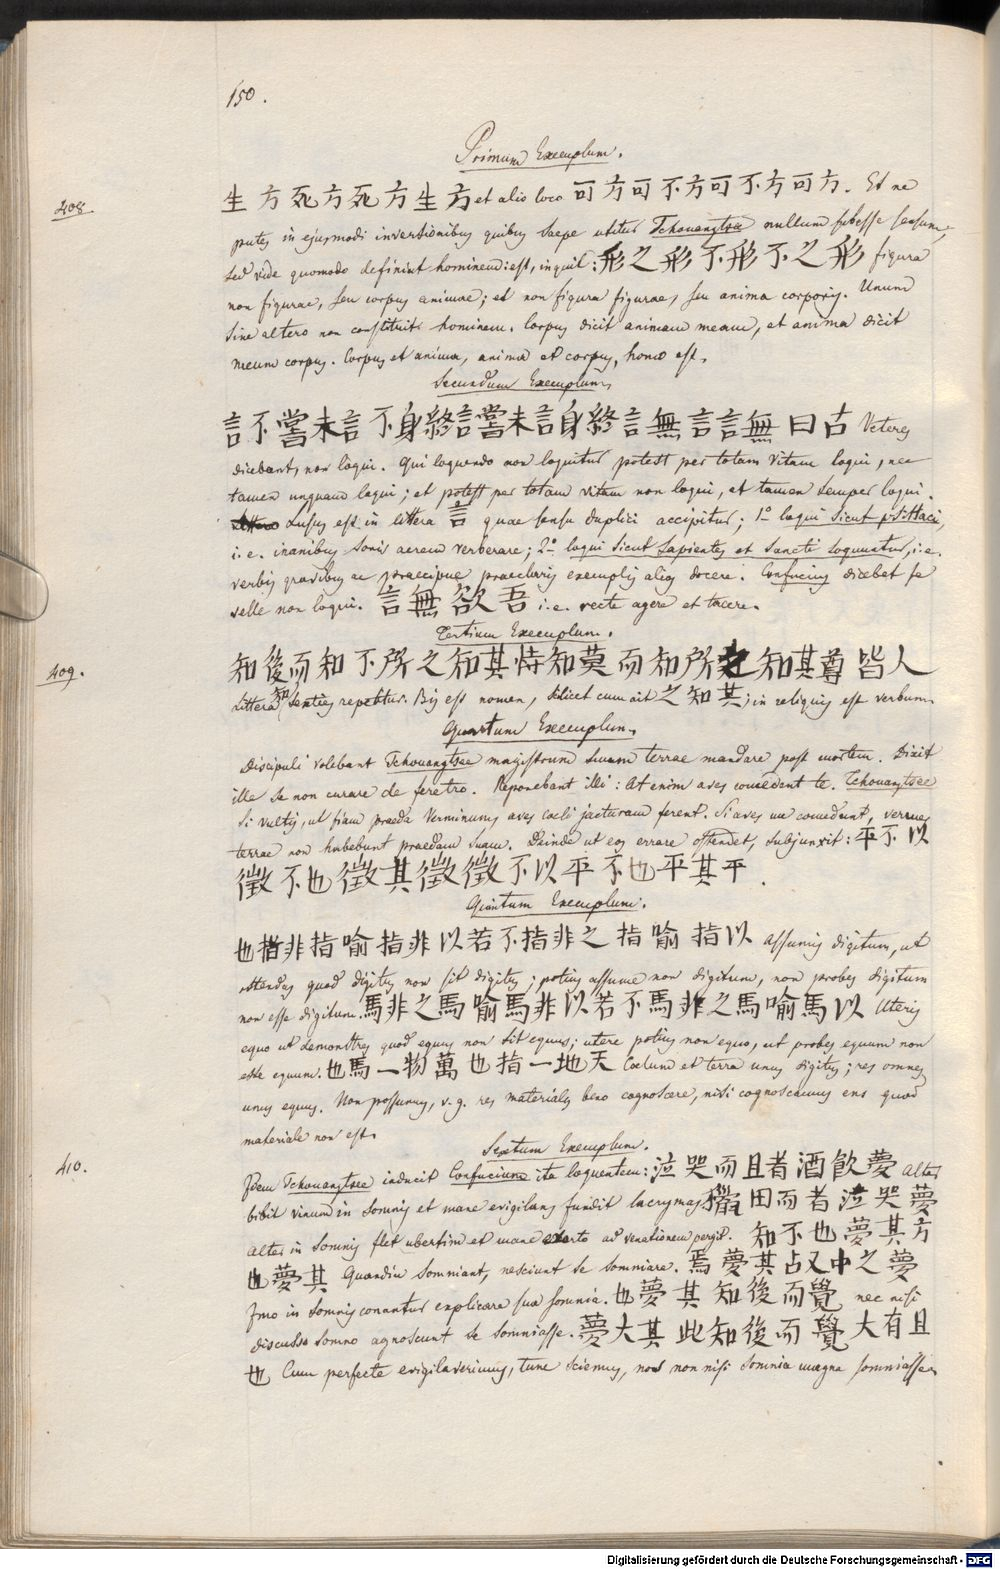 150.
Primum Exemplum.
408.
生方死方死方生方 et alio loco 可方可不方可不方可方. Et ne
putes in ejusmodi inversionibus quibus saepe utitur Tchouangtsee nullum subesse sensum,
sed vide quomodo definiat hominem: est, inquit: 形之形不形不之形 figura
non figurae, seu corpus animae; et non figura figurae, seu anima corporis. Unum
sine altero non constituit hominem. Corpus dicit animam meam, et anima dicit
meum corpus. Corpus et anima, anima et corpus, homo est.
Secundum Exemplum.
言不嘗未言不身終言嘗未言身終言無言言無曰古 Veteres
dicebant, non loqui. Qui loquendo non loquitur potest per totam vitam loqui, nec
tamen unquam loqui; et potest per totam vitam non loqui, et tamen semper loqui.
Lusus est in littera 言 quae sensu duplici accipitur; 1º loqui sicut psittaci,
i.e. inanibus sonis aerem verberare; 2º loqui sicut sapientes et sancti loquuntur, i.e.
verbis gravibus ac praecipue praeclaris exemplis alios docere. Confucius dicebat se
velle non loqui. 言無欲吾 i.e. recte agere et tacere.
Tertium Exemplum.
409.
知後而知不所之知其恃知莫而知所之知其尊皆人
Littera 知 sexties repetitur. Bis est nomen, scilicet cum ait 之知其; in reliquis est verbum.
Quartum Exemplum.
Discipuli volebant Tchouangtsee magistrum suum terrae mandare post mortem. Dixit
ille se non curare de feretro. Reponebant illi: At enim aves comedent te. Tchouangtsee
Si vultis, ut fiam praeda verminum, aves coeli jacturam ferent. Si aves me comedunt, vermes
terrae non habebunt praedam suam. Deinde ut eos errare ostendat, subjunxit: 平不以
徵不也徵其徵徵不以平不也平其平.
Quintum Exemplum.
也指非指喻指非以若不指非之指喻指以 assumis digitum, ut
ostendas quod digitus non sit digitus; potius assume non digitum, non probes digitum
non esse digitum. 馬非之馬喻馬非以若不馬非之馬喻馬以 Uteris
equo ut demonstres quod equus non sit equus; utere potius non equo, ut probes equum non
esse equum. 也馬一物萬也指一地天 Coelum et terra unus digitus; res omnes
unus equus. Non possumus, v.g. res materiales bene cognoscere, nisi cognoscamus ens quod
materiale non est.
Sextum Exemplum.
410.
Idem Tchouangtsee inducit Confucium ita loquentem: 泣哭而旦者酒飲夢 alter
bibit vinum in somnis et mane evigilans fundit lacrymas 獵田而者泣哭夢
alter in somnis flet ubertim et mane ad venationem pergit. 知不也夢其方
也夢其 Quandiu somniant, nesciunt se somniare. 焉夢其占又中之夢
Imo in somnis conantur explicare sua somnia. 也夢其知後而覺 nec nisi
discusso somno agnoscunt se somniasse. 夢大其此知後而覺大有且
也 Cum perfecte evigilaverimus, tunc sciemus, nos non nisi somnia magna somniasse.
Digitalisierung gefördert durch die Deutsche Forschungsgemeinschaft - DFG